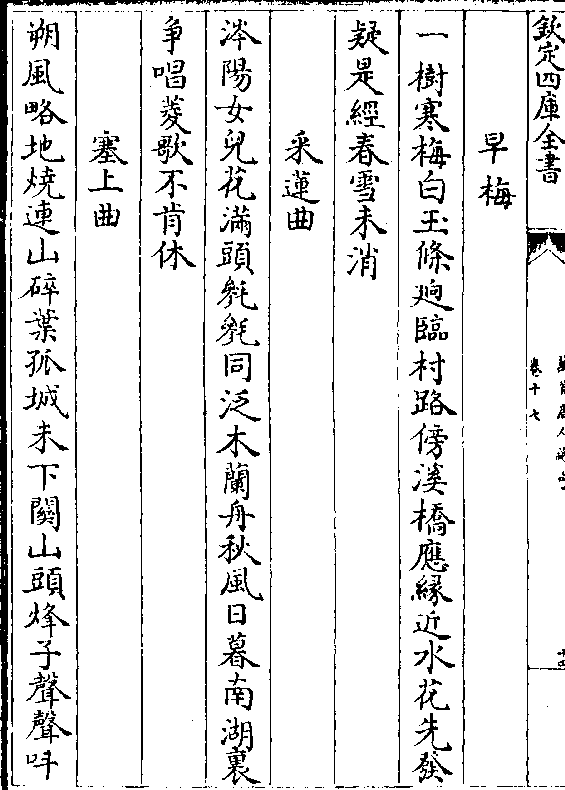 欽定四庫全書
萬首唐人絶句
卷十七
早梅
一樹寒梅白玉條逈臨村路傍溪橋應縁近水花先發
疑是經春雪未消
采蓮曲
涔陽女兒花滿頭毿毿同泛木蘭舟秋風日暮南湖裏
争唱菱歌不肯休
塞上曲
朔風略地燒連山碎葉孤城未下關山頭烽子聲聲叫